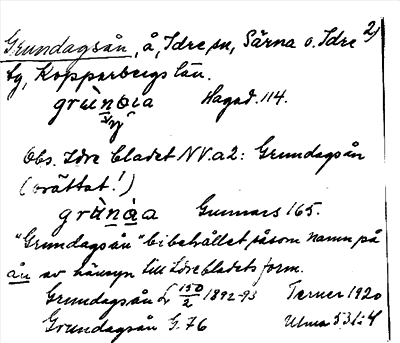 Grundagsån, å, Idre sn, Särna o. Idre 2)
tg, Kopparbergs län.
grùnoia Hagad. 114.
Obs. Idre bladet NV. a2: Grundagsån
(orättat!)
grùnàa Gunnars 165.
"Grundagsån" bibehållet såsom namn på
ån av hänsyn till Idrebladets form.
Grundagsån L 150/2 1892-93 Terner 1920
Grundagsån G. 76 Ulma 531:4